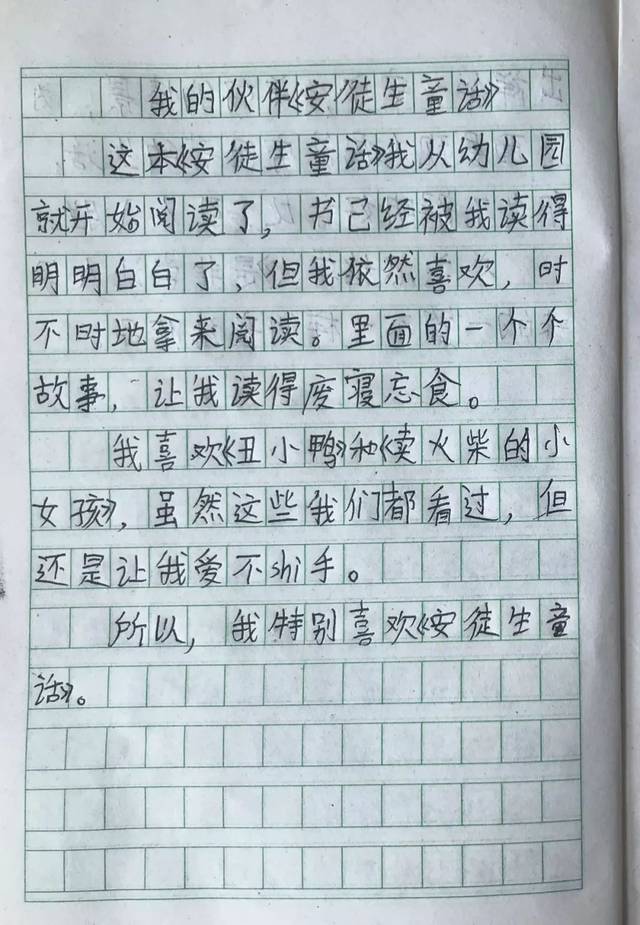 我的伙伴《安徒生童话》
这本《安徒生童话》我从幼儿园
就开始阅读了，书已经被我读得
明明白白了，但我依然喜欢，时
不时地拿来阅读。里面的一个个
故事，让我读得废寝忘食。
我喜欢《丑小鸭》和《卖火柴的小
女孩》，虽然这些我们都看过，但
还是让我爱不shi手。
所以，我特别喜欢《安徒生童
话》。